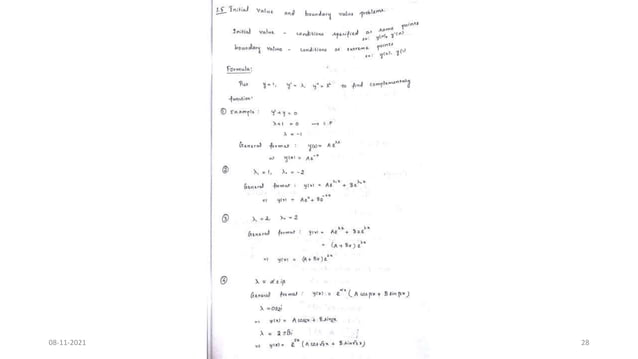 1.5 Initial value and boundary value problems.
Initial value - conditions specified at same points
ex: y(0), y'(0)
boundary values - conditions at extreme points
ex: y(0), y(1)
Formula:
Put y=1, y'=λ, y''=λ² to find complementary
function.
① Example: y'+y=0
λ+1=0
λ=-1
General format: y(x)=Ae^λx
y(x)=Ae^-x
② λ₁=1, λ₂=-2
General format: y(x)=Ae^λ₁x + Be^λ₂x
y(x)=Ae^x + Be^-2x
③ λ=2 λ=2
General format: y(x)= Ae^λx + Bxe^λx
= (A+Bx)e^λx
y(x) = (A+Bx)e^2x
④ λ = α±iβ
General format: y(x) = e^αx (A cosβx + B sinβx)
08-11-2021
28